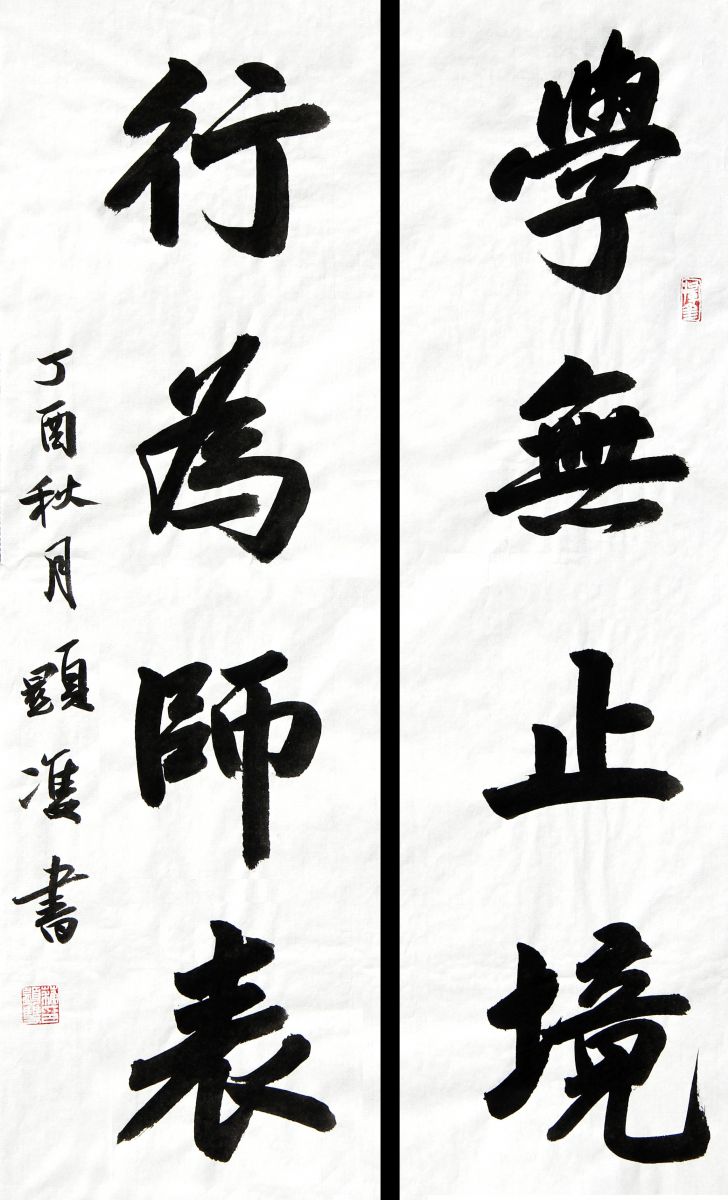 學無止境
行為師表
丁酉秋月顯準書